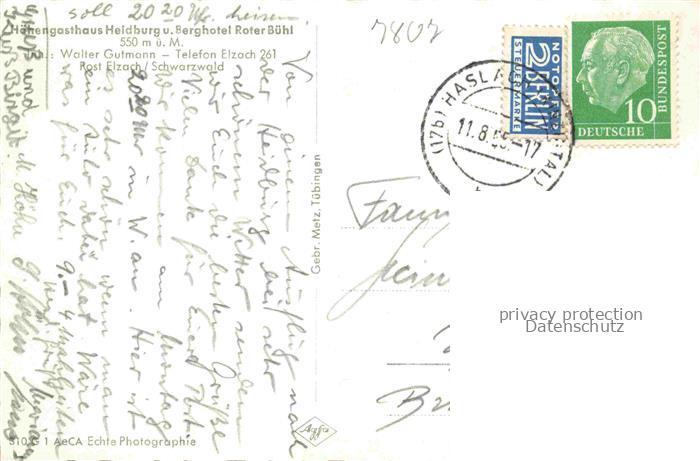 soll 20 20 Uhr heissen
Höhengasthaus Heidburg u. Berghotel Roter Bühl
550 m ü. M.
Walter Gutmann — Telefon Elzach 261
Post Elzach / Schwarzwald
7802
Von einem Ausflug nach
der Heidburg bei sehr
schönem Wetter senden
wir Euch die besten Grüße
Vielen Dank für Eure Post
Wir kommen am Montag
20 20 Uhr in W. an. Hier ist
es sehr schön wenn man
ein Auto dabei hat. Wäre
was für Euch. 9.- 4 Mahlzeiten
Gruß und
Gebr. Metz, Tübingen
Fam
Hein
Br
NOTOPFER
2 BERLIN
STEUERMARKE
10
DEUTSCHE
BUNDESPOST
(17b) HASLACH (KINZIGTAL)
11.8.55.-17
privacy protection
Datenschutz
Agfa
810 G 1 AeCA Echte Photographie